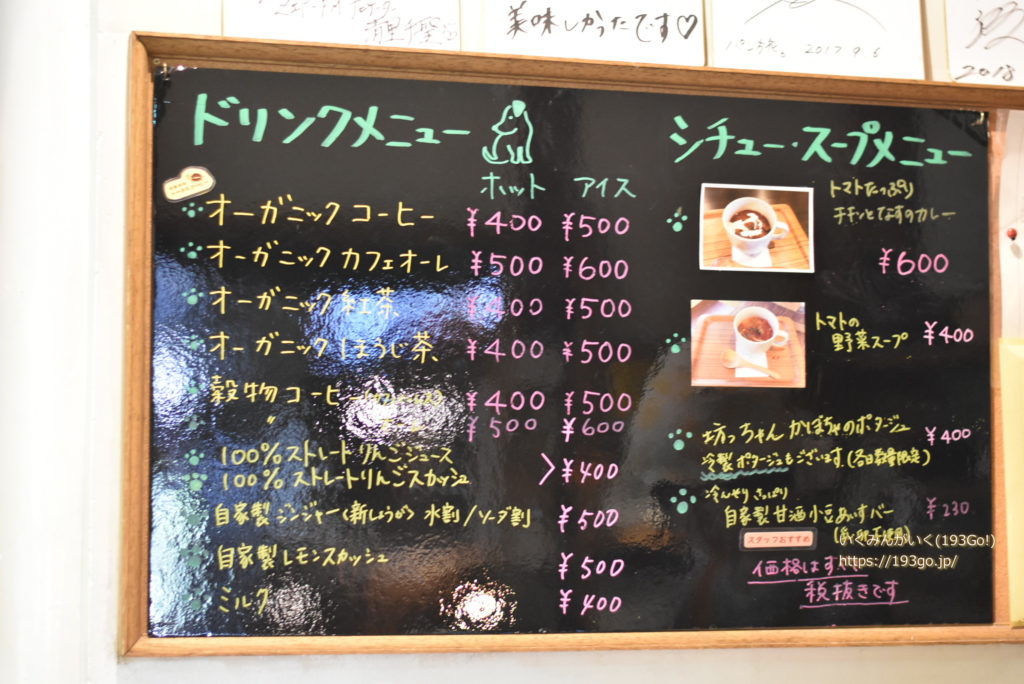 美味しかったです♡
パン旅。 2017 9.6
2018
ドリンクメニュー
ホット アイス
オーガニックコーヒー ¥400 ¥500
オーガニックカフェオーレ ¥500 ¥600
オーガニック紅茶 ¥400 ¥500
オーガニックほうじ茶 ¥400 ¥500
穀物コーヒー ¥400 ¥500
〃 ¥500 ¥600
100%ストレートりんごジュース
100%ストレートりんごスカッシュ
¥400
自家製ジンジャー(新しょうが) 水割/ソーダ割 ¥500
自家製レモンスカッシュ ¥500
ミルク ¥400
シチュー・スープメニュー
トマトたっぷり
チキンとなすのカレー
¥600
トマトの
野菜スープ ¥400
坊っちゃんかぼちゃのポタージュ ¥400
冷製ポタージュもございます。(各日数量限定)
冷んやりさっぱり
自家製甘酒小豆あいすバー ¥230
スタッフおすすめ
いくみんがいく(193Go!)
https://193go.jp/
価格はすべて
税抜きです